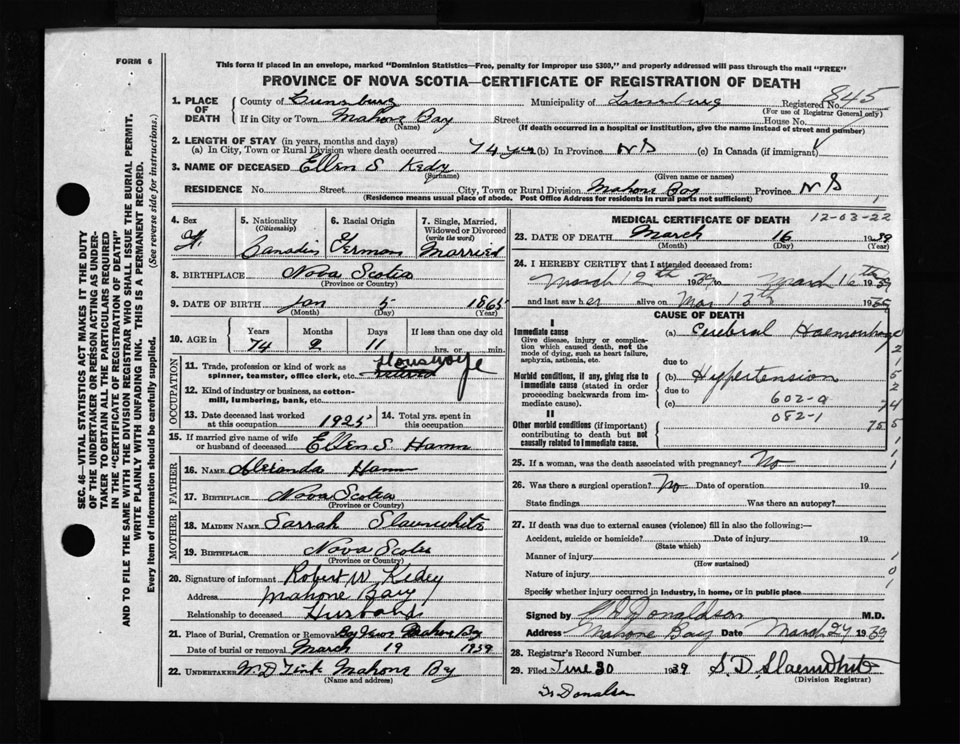 FORM 6
This form if placed in an envelope, marked "Dominion Statistics—Free, penalty for improper use $300," and properly addressed will pass through the mail "FREE"
PROVINCE OF NOVA SCOTIA—CERTIFICATE OF REGISTRATION OF DEATH
SEC. 46—VITAL STATISTICS ACT MAKES IT THE DUTY
OF THE UNDERTAKER OR PERSON ACTING AS UNDER-
TAKER TO OBTAIN ALL THE PARTICULARS REQUIRED
IN THE "CERTIFICATE OF REGISTRATION OF DEATH"
AND TO FILE THE SAME WITH THE DIVISION REGISTRAR WHO SHALL ISSUE THE BURIAL PERMIT.
WRITE PLAINLY WITH UNFADING INK. THIS IS A PERMANENT RECORD.
Every item of Information should be carefully supplied. (See reverse side for instructions.)
1. PLACE OF DEATH County of Lunenburg Municipality of Lunenburg Registered No. 845
(For use of Registrar General only)
If in City or Town Mahone Bay Street House No.
(Name) (If death occurred in a hospital or institution, give the name instead of street and number)
2. LENGTH OF STAY (in years, months and days)
(a) In City, Town or Rural Division where death occurred 74 yrs (b) In Province N S (c) In Canada (if immigrant)
3. NAME OF DECEASED Ellen S Kedy
(Surname) (Given name or names)
RESIDENCE No. Street City, Town or Rural Division Mahone Bay Province N S
(Residence means usual place of abode. Post Office Address for residents in rural parts not sufficient) 1
4. Sex F.
5. Nationality (Citizenship) Canadin
6. Racial Origin German
7. Single, Married, Widowed or Divorced (write the word) Married
8. BIRTHPLACE Nova Scotia
(Province or Country)
9. DATE OF BIRTH Jan 5 1865
(Month) (Day) (Year)
10. AGE in Years Months Days If less than one day old
74 2 11 hrs. or min.
OCCUPATION
11. Trade, profession or kind of work as spinner, teamster, office clerk, etc. Housewife retired
12. Kind of industry or business, as cotton-mill, lumbering, bank, etc.
13. Date deceased last worked at this occupation 1925
14. Total yrs. spent in this occupation
15. If married give name of wife or husband of deceased Ellen S. Hamm
FATHER
16. NAME Alexanda Hamm
17. BIRTHPLACE Nova Scotia
(Province or Country)
MOTHER
18. MAIDEN NAME Sarrah Slaunwhite
19. BIRTHPLACE Nova Scotia
(Province or Country)
20. Signature of informant Robert W Kedey
Address Mahone Bay
Relationship to deceased Husband
21. Place of Burial, Cremation or Removal Mahone Bay
Date of burial or removal March 19 1939
22. UNDERTAKER W. D Zink Mahone Bay
(Name and address)
MEDICAL CERTIFICATE OF DEATH 12-03-22
23. DATE OF DEATH March 16 1939
(Month) (Day) (Year)
24. I HEREBY CERTIFY that I attended deceased from:
March 12th 1939 March 16th 1939
and last saw her alive on Mar 13th 1939
CAUSE OF DEATH
I
Immediate cause
Give disease, injury or complication which caused death, not the mode of dying, such as heart failure, asphyxia, asthenia, etc.
(a) Cerebral Haemorrhage
due to
Morbid conditions, if any, giving rise to immediate cause (stated in order proceeding backwards from immediate cause).
(b) Hypertension
due to 602-9
(c) 082-1
II
Other morbid conditions (if important) contributing to death but not causally related to immediate cause.
25. If a woman, was the death associated with pregnancy? No
26. Was there a surgical operation? No Date of operation 19
State findings Was there an autopsy?
27. If death was due to external causes (violence) fill in also the following:—
Accident, suicide or homicide? Date of injury 19
(State which)
Manner of injury 1
(How sustained)
Nature of injury 0
Specify whether injury occurred in industry, in home, or in public place 1
Signed by Donaldson M.D.
Address Mahone Bay Date March 27 1939
28. Registrar's Record Number
29. Filed June 30 1939 S. D. Slaenwhite
(Division Registrar)
Donalson